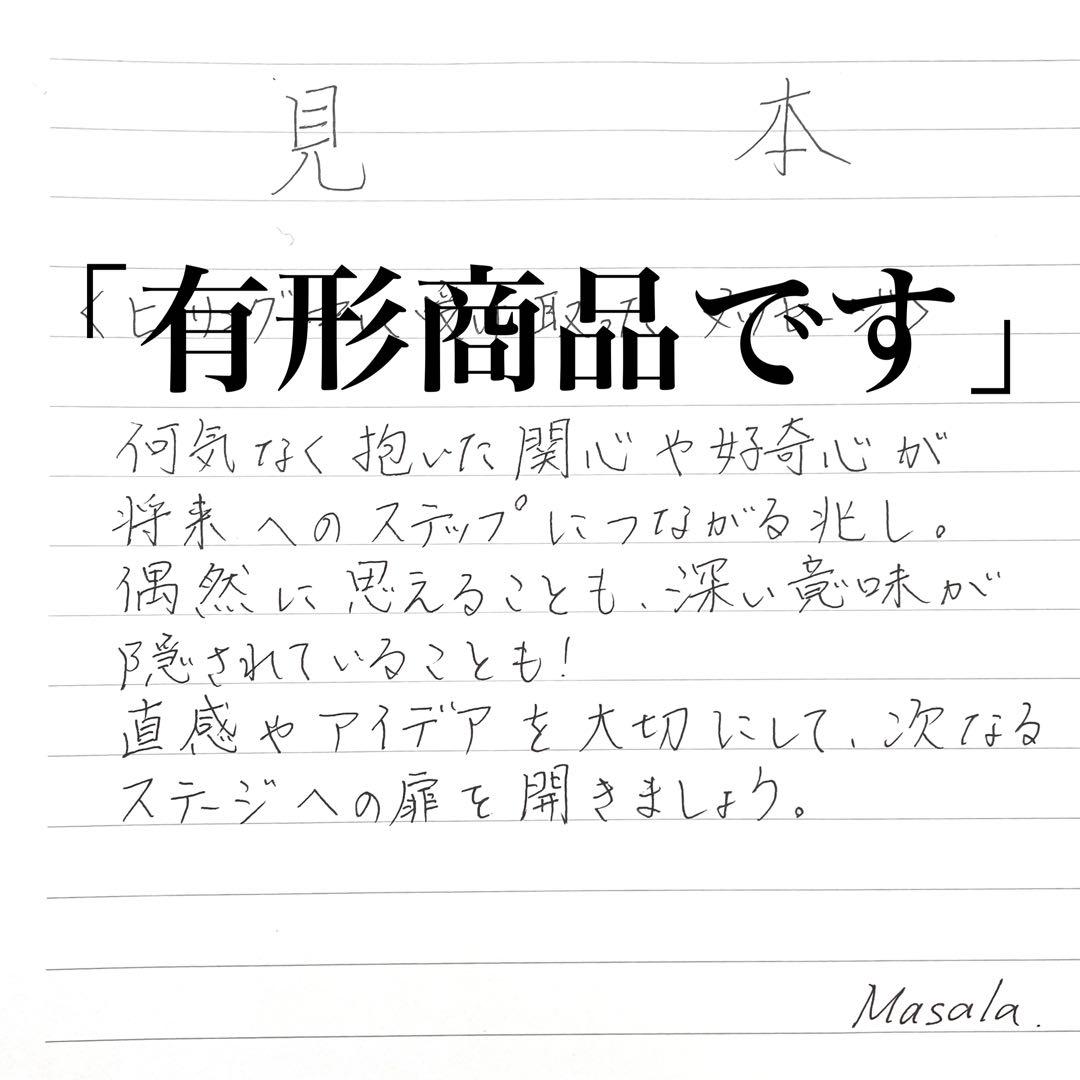 見 本
「有形商品です」
何気なく抱いた関心や好奇心が
将来へのステップにつながる兆し。
偶然に思えることも、深い意味が
隠されていることも!
直感やアイデアを大切にして、次なる
ステージへの扉を開きましょう。
Masala.